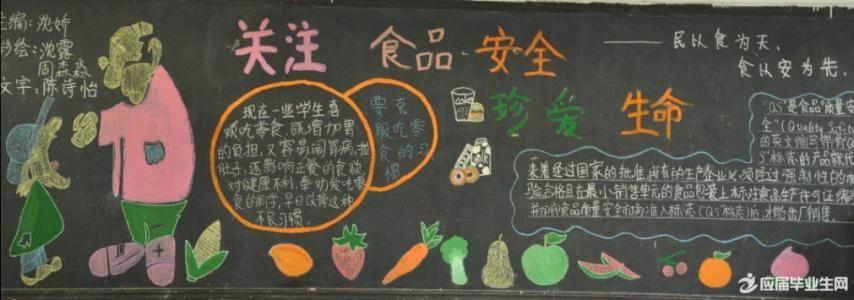 主编:沈娇
彩绘:沈露
周淼淼
文字:陈诗怡
关注 食品 安全
珍爱 生命
——民以食为天,
食以安为先.
现在一些学生喜
欢吃零食,既增加胃
的负担,又容易闹胃病,拉
肚子,还影响正餐的食欲,
对健康不利,奉劝爱吃零
食的同学,早日改掉这种
不良习惯
要克
服吃零
食的习
惯
cola
"QS"是食品质量安
全"(Quality Safety
的英文缩写带有QS
S"标志的产品就代
表着经过国家的批准,所有的生产企业必须经过强制性的检
验合格且在最小销售单元的食品包装上标注食品生产许可证编号
并加印食品质量安全市场准入标志("QS标志)后才能出厂销售.
应届毕业生网